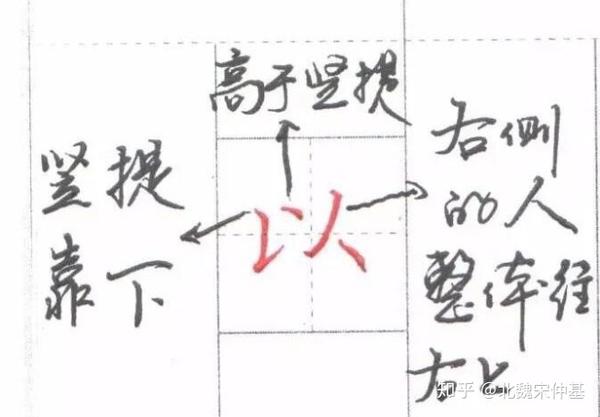 高于竖提
竖提
靠下
以
右侧
的人
整体
右
知乎 @北魏宋仲基